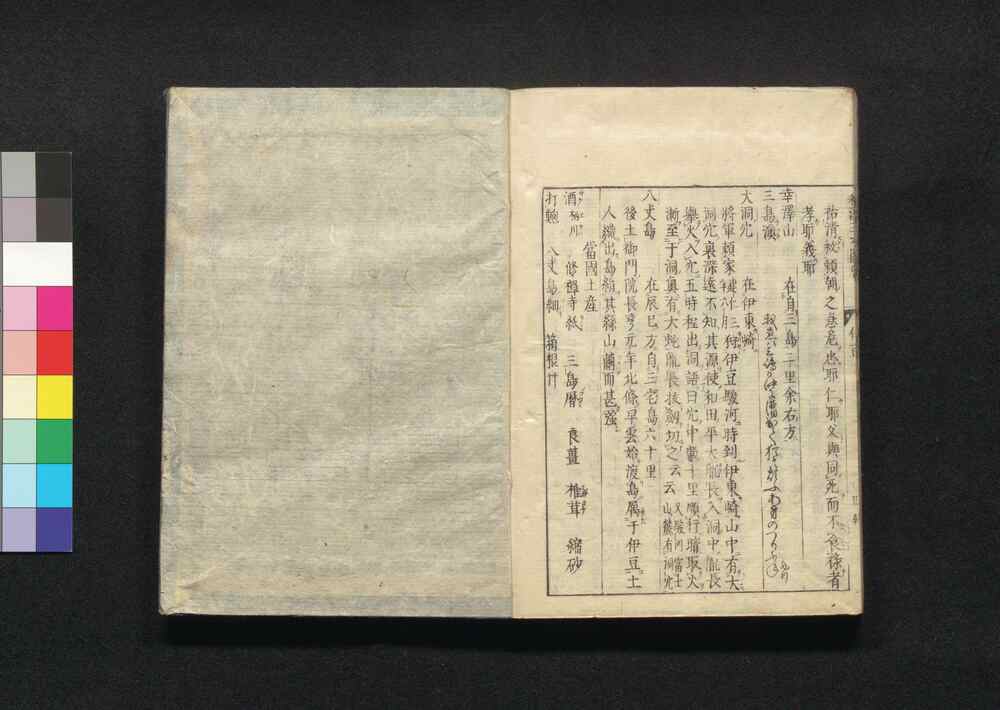 祐清被頼朝之急危也耶仁耶父與同死而不食祿者
孝耶義耶
幸澤山 在自三島二十里余右方
三島湊
大洞穴 在伊東崎
將軍頼家 狩伊豆駿河時到伊東崎山中有大
洞穴裏深遠不知其源使和田平太胤長入洞中胤長
擧火入穴五時程出洞語曰穴中數十里順行暗取火
漸至于洞奥有大蛇胤長拔劔切之云云 又駿河富士山麓有洞穴
八丈島 在辰巳方自三宅島六十里
後土御門院長享元年北條早雲始渡島属于伊豆土
人織出島絹其絲山繭而甚强
當國土産
酒 修禪寺紙 三島暦 良薑 椎茸 縮砂
打鮑 八丈島紬 箱根竹